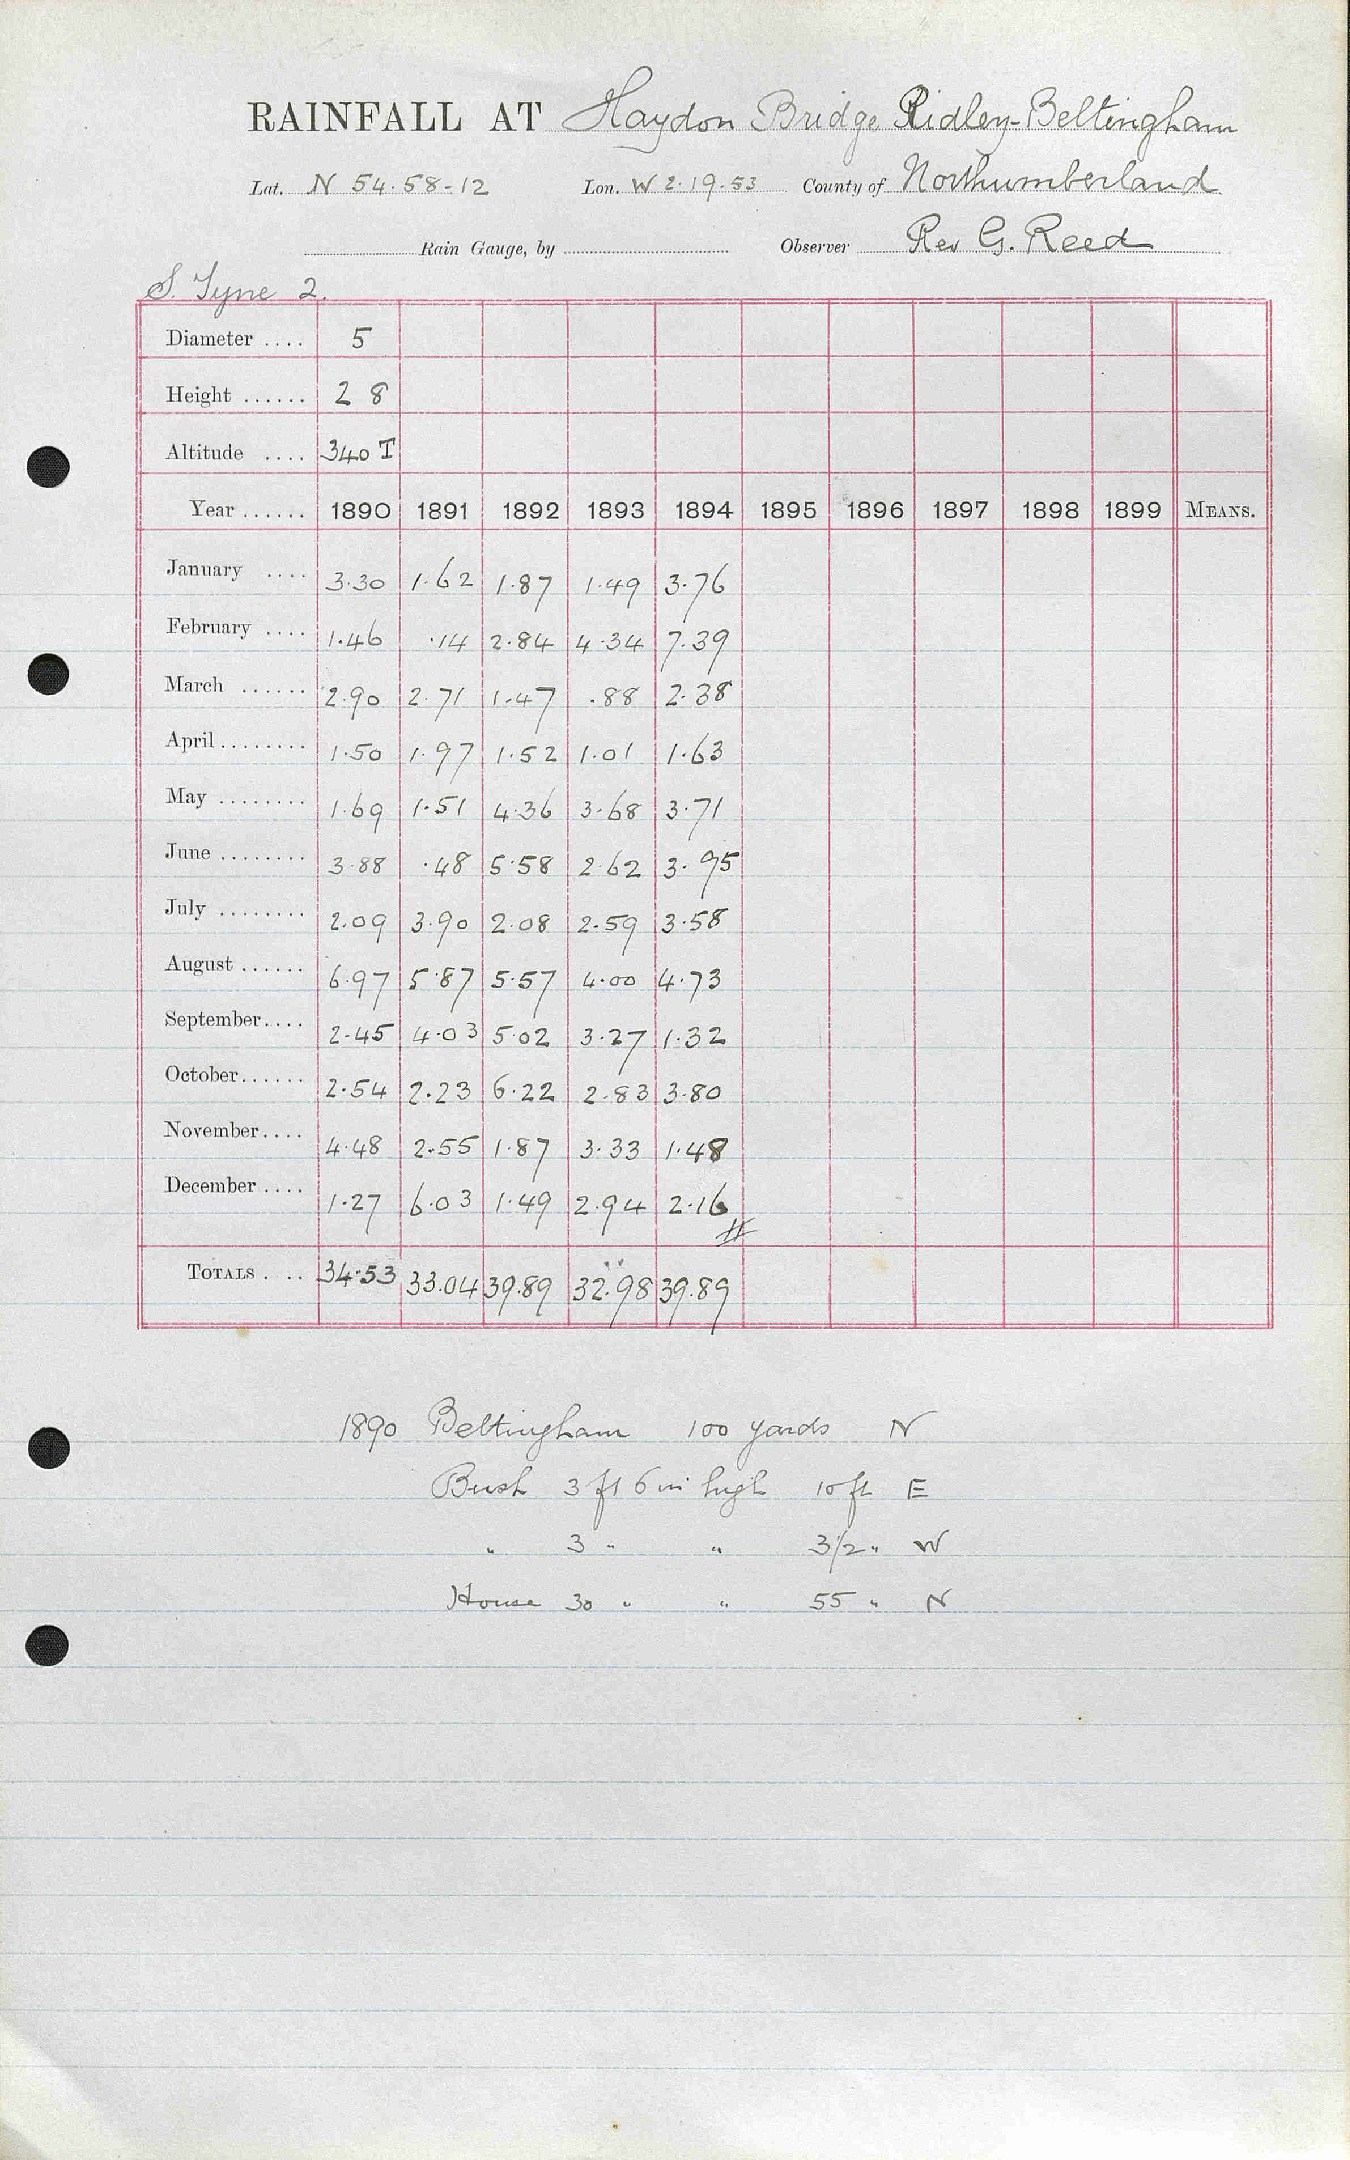 RAINFALL AT Haydon Bridge Ridley-Beltingham
Lat. N 54.58-12 Lon. W 2.19.53 County of Northumberland
Rain Gauge, by Observer Rev G. Reed
S. Tyne 2.
Diameter .... 5
Height ...... 2 8
Altitude .... 340 T
Year ...... 1890 1891 1892 1893 1894 1895 1896 1897 1898 1899 MEANS.
January .... 3.30 1.62 1.87 1.49 3.76
February .... 1.46 .14 2.84 4.34 7.39
March ...... 2.90 2.71 1.47 .88 2.38
April ........ 1.50 1.97 1.52 1.01 1.63
May ........ 1.69 1.51 4.36 3.68 3.71
June ........ 3.88 .48 5.58 2.62 3.95
July ........ 2.09 3.90 2.08 2.59 3.58
August ...... 6.97 5.87 5.57 4.00 4.73
September .... 2.45 4.03 5.02 3.27 1.32
October ...... 2.54 2.23 6.22 2.83 3.80
November .... 4.48 2.55 1.87 3.33 1.48
December .... 1.27 6.03 1.49 2.94 2.16
TOTALS . .. 34.53 33.04 39.89 32.98 39.89
1890 Beltingham 100 yards N
Bush 3 ft 6 in high 10 ft E
" 3 " " 3 1/2 " W
House 30 " " 55 " N